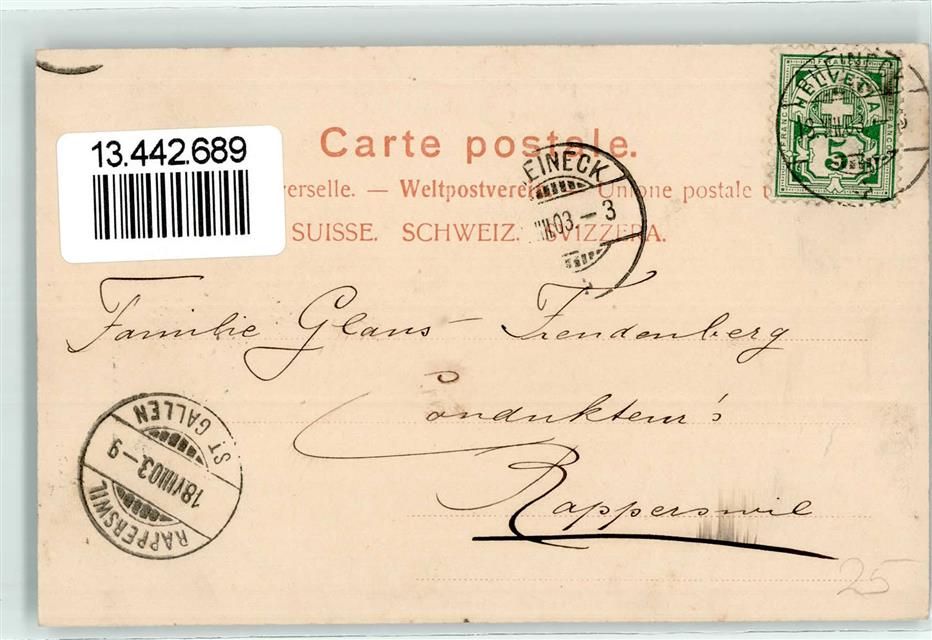 13.442.689
Carte postale.
erselle. — Weltpostverein Unione postale
SUISSE. SCHWEIZ. SVIZZERA.
HELVETIA
5
EINECK
III.03.-3
Familie Glaus-
Condukteur's
Rapperswil
RAPPERSWIL
18.VIII.03.-9
ST GALLEN
25